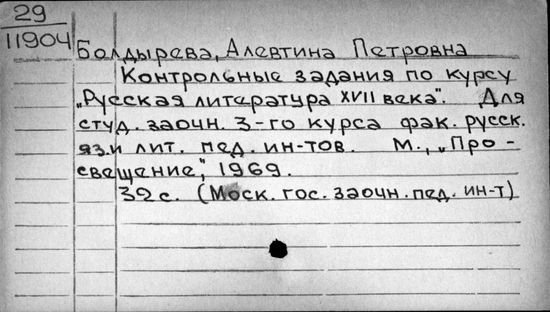 29
11904
Болдырева, Алевтина Петровна
Контрольные задания по курсу
„Русская литература XVII века". Для
студ. заочн. 3-го курса фак. русск.
яз. и лит. пед. ин-тов. М., „Про-
свещение", 1969.
32 с. (Моск. гос. заочн. пед. ин-т)